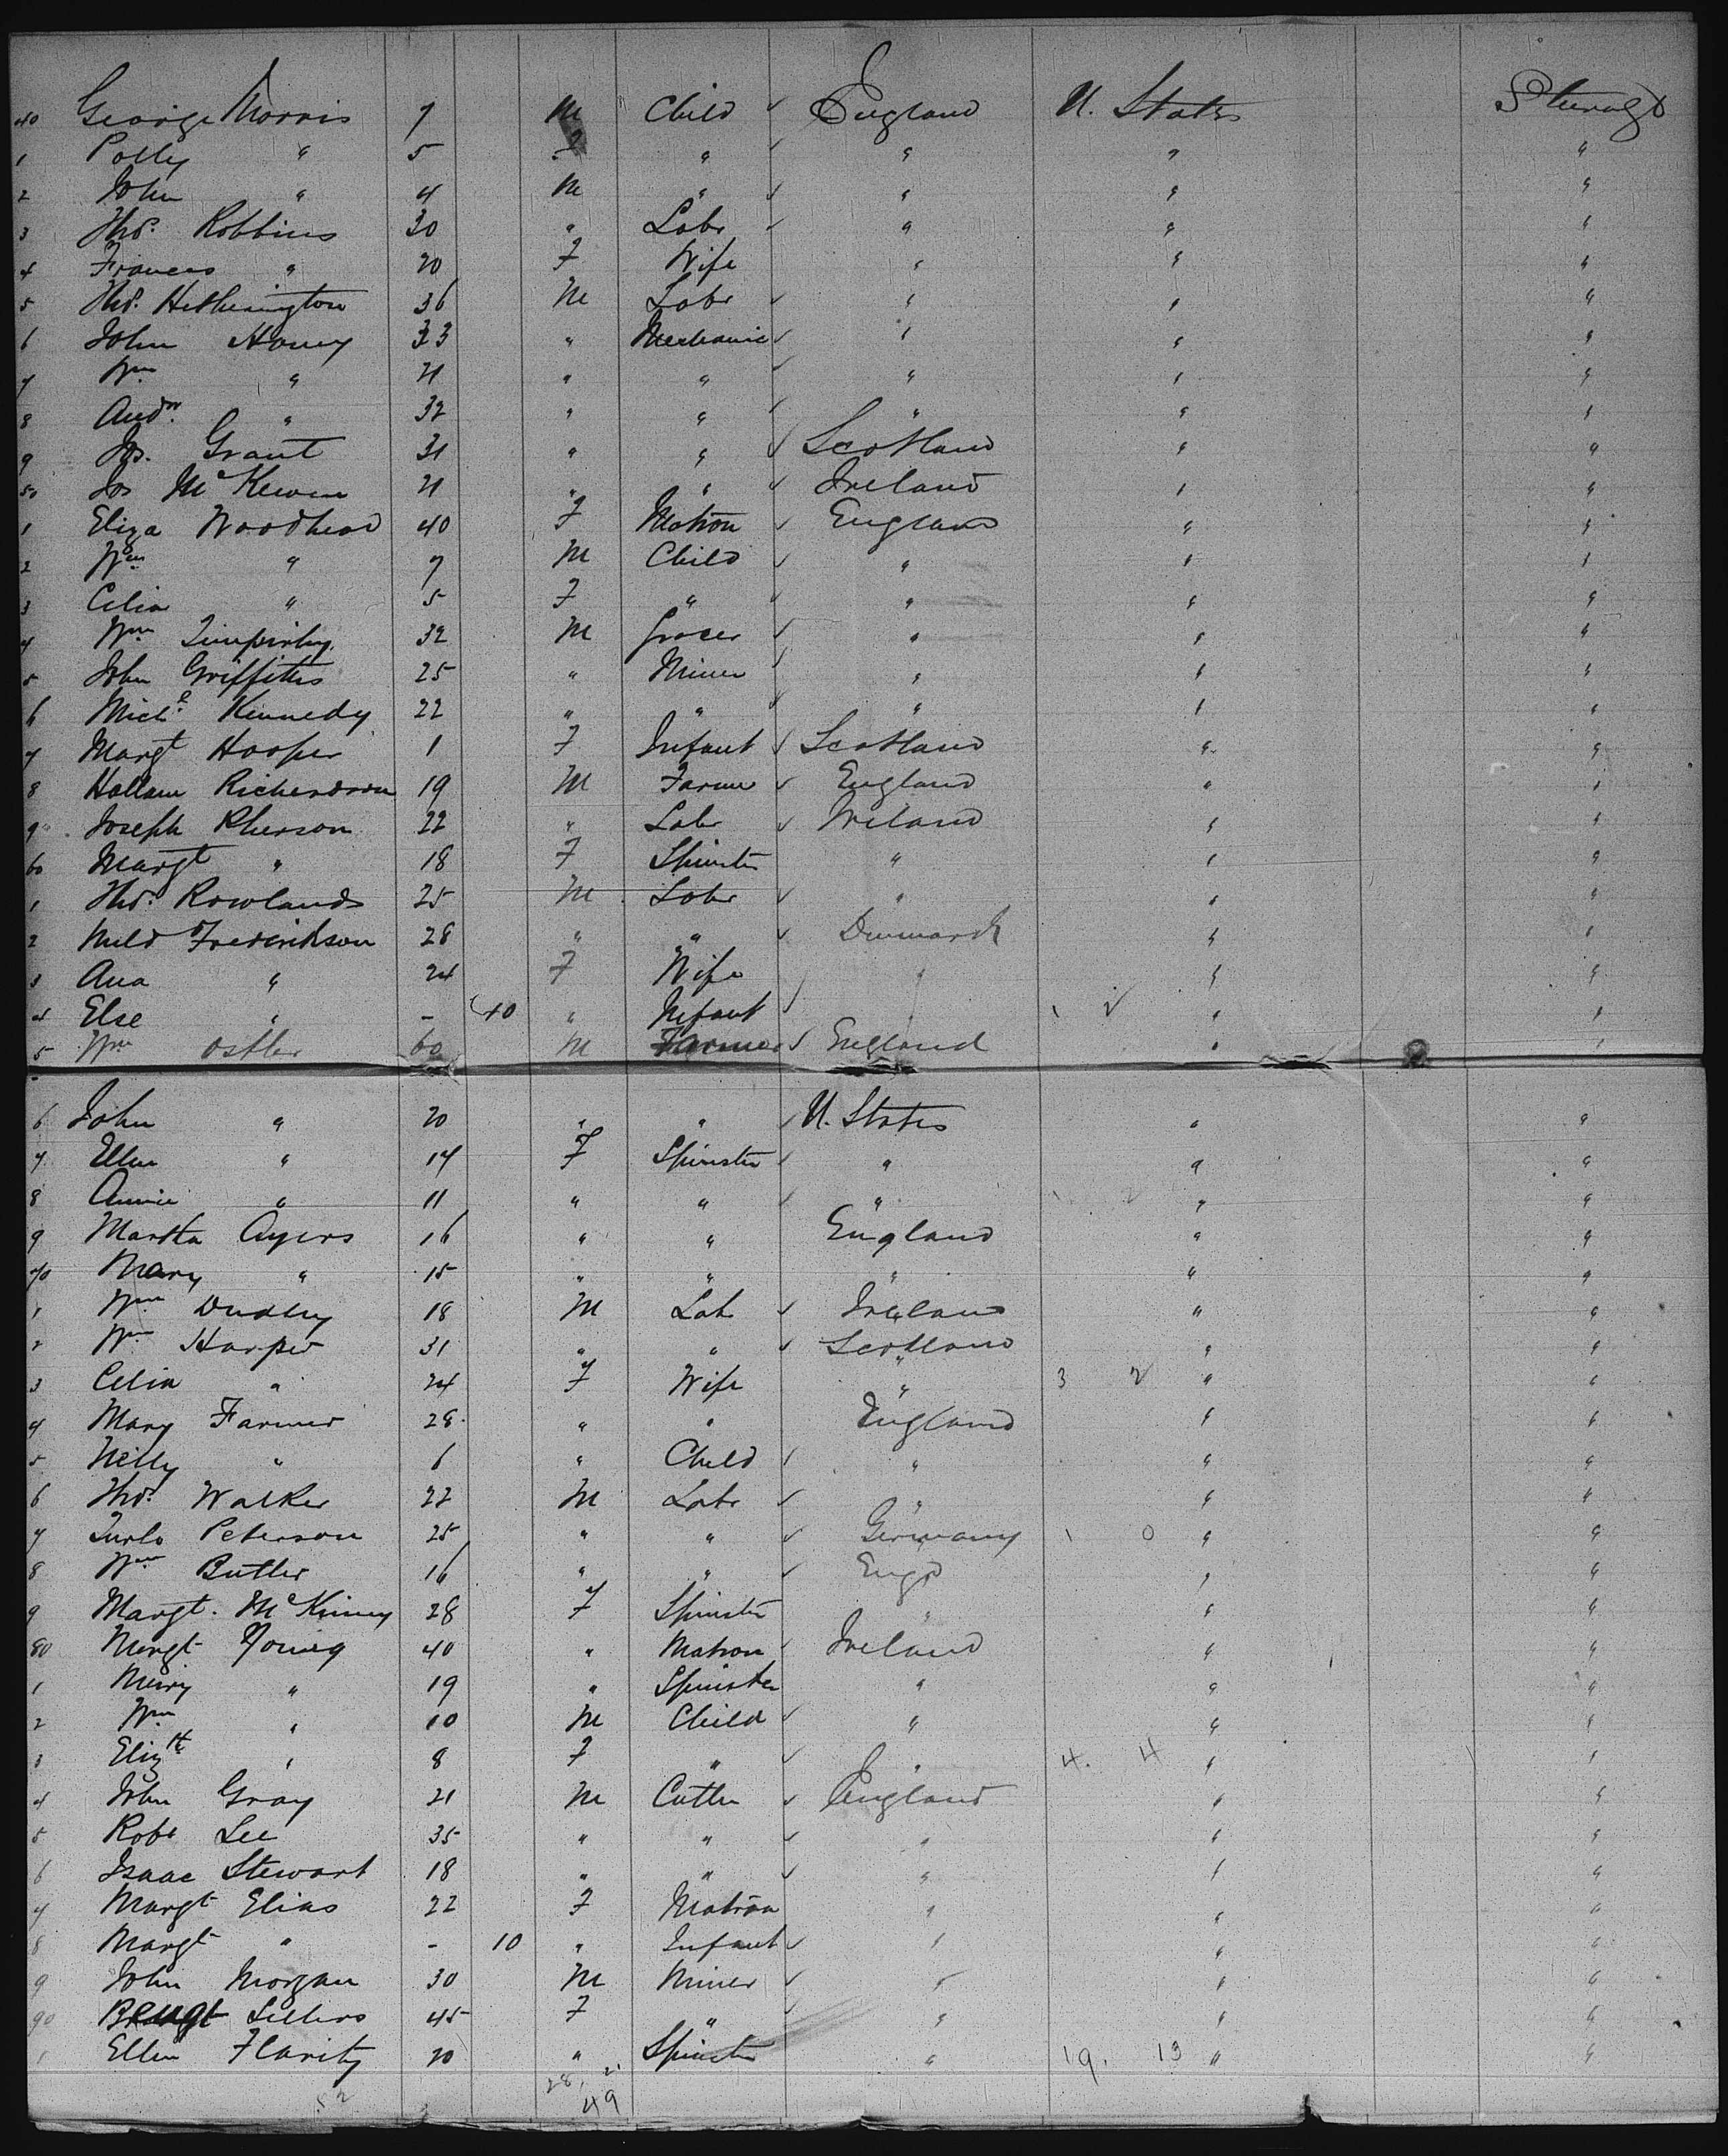 40 George Morris 7 M Child ✓ England U. States
1 Polly " 5 F " ✓ " " "
2 John " 4 M " ✓ " " "
3 Thos. Robbins 30 " Labr ✓ " " "
4 Frances " 20 F Wife " " "
5 Thos. Hetherington 36 M Labr ✓ " " "
6 John Honey 33 " Mechanic ✓ " " "
7 Wm " 21 " " ✓ " " "
8 Andw. " 32 " " ✓ " " "
9 Jos. Grant 31 " " ✓ Scotland " "
50 Jos McKewen 21 " " ✓ Ireland " "
1 Eliza Woodhead 40 F Matron ✓ England " "
2 Wm " 7 M Child ✓ " " "
3 Celia " 5 F " ✓ " " "
4 Wm 32 M Grocer ✓ " " "
5 John Griffiths 25 " Miner ✓ " " "
6 Michl. Kennedy 22 " " ✓ " " "
7 Margt Hooper 1 F Infant ✓ Scotland " "
8 Hallam Richardson 19 M Farmer ✓ England " "
9 Joseph Pherson 22 " Labr ✓ Ireland " "
60 Margt " 18 F Spinster " " "
1 Thos. Rowlands 25 M Labr ✓ " " "
2 Frederickson 28 " " ✓ Denmark " "
3 Ana " 24 F Wife " " "
4 Else " - 10 " Infant ✓ 1 2 " "
5 Wm Ostler 60 M Farmer ✓ England " "
6 John " 20 " " ✓ U. States " "
7 Ellen " 14 F Spinster ✓ " " "
8 Annie " 11 " " ✓ " 1 2 " "
9 Martha Ayers 16 " " England " "
70 Mary " 15 " " " " "
1 Wm Dudley 18 M Lab ✓ Ireland " "
2 Wm Harper 31 " " ✓ Scotland " "
3 Celia " 24 F Wife " 3 2 " "
4 Mary Farmer 28 " " England " "
5 Nelly " 6 " Child ✓ " " "
6 Thos. Walker 22 M Labr ✓ " " "
7 Peterson 25 " " ✓ Germany 1 0 " "
8 Wm Butler 16 " " ✓ Engd " "
9 Margt. McKinney 28 F Spinster " " "
80 Margt Young 40 " Matron ✓ Ireland " "
1 Mary " 19 " Spinster " " "
2 Wm " 10 M Child ✓ " " "
3 Elizth " 8 F " ✓ " 4. 4 " "
4 John Gray 21 M Cutler ✓ England " "
5 Robt Lee 35 " " ✓ " " "
6 Isaac Stewart 18 " " ✓ " " "
7 Margt Elias 22 F Matron " " "
8 Margt " - 10 " Infant ✓ " " "
9 John Morgan 30 M Miner ✓ " " "
90 45 F " ✓ " " "
1 Ellen Flarity 20 " Spinster " 19. 13 " "
52 28, 21
49